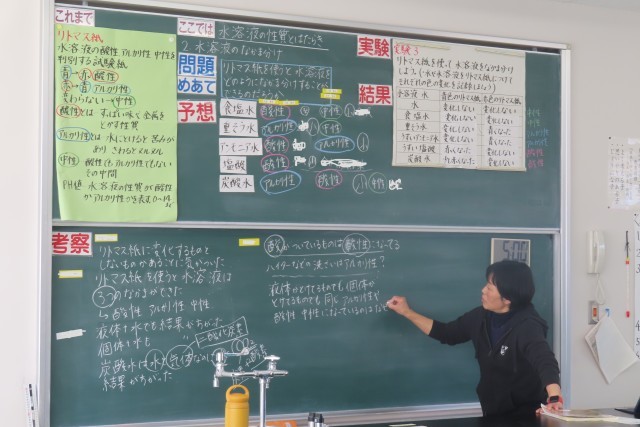 これまで
リトマス紙
水溶液の酸性 アルカリ性 中性を
判別する試験紙
青→赤 酸性
赤→青 アルカリ性
変わらない→中性
酸性とは すっぱい味で金属を
とかす性質
アルカリ性とは 水にとけると苦みが
あり さわるとぬるぬる
中性 酸性もアルカリ性もない
その中間
PH値 水溶液の性質が酸性
かアルカリ性かを表す
ここでは
水溶液の性質とはたらき
2. 水溶液のなかま分け
問題
めあて
リトマス紙を使うと 水溶液を
どのようになかま分けすることが
できるのだろうか
予想
食塩水 酸性 中性
重そう水 アルカリ性
アンモニア水 酸性
塩酸 酸性
炭酸水 アルカリ性 酸性 中性
実験
結果
実験3
リトマス紙を使って水溶液をなかま分け
しよう
水溶液 青色のリトマス紙 赤色のリトマス紙
水 変化しない 変化しない
食塩水 変化しない 変化しない
重そう水 変化しない 青くなった
うすいアンモニア水 変化しない 青くなった
うすい塩酸 赤くなった 変化しない
炭酸水 変化しない
中性
中性
アルカリ性
アルカリ性
酸性
酸性
考察
リトマス紙に変化するものと
しないものがあることに気がついた
リトマス紙を使うと 水溶液は
3つのなかまができた
↳ 酸性 アルカリ性 中性
液体+水でも結果がちがった
個体+水も
二酸化炭素
炭酸水は 水と気体なのに
結果がちがった
酸がついているものは酸性になってる
ハイターなどの洗ざいはアルカリ性？
液体がとけてるものも個体が
とけてるものも同じアルカリ性や
酸性 中性になっているのは